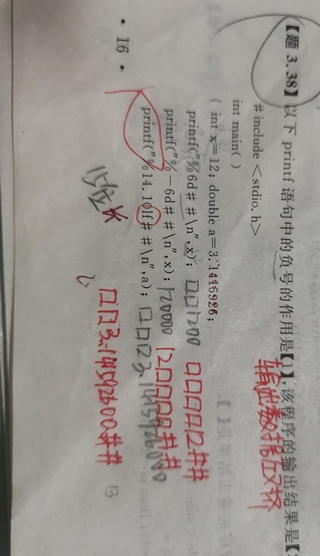 【题 3.38】以下 printf 语句中的负号的作用是【1】,该程序的输出结果是【
输出数据
#include <stdio.h>
int main( )
{ int x=12; double a=3.1415926;
printf("%6d##\n",x); □□1200 □□□□12##
printf("%-6d##\n",x); 120000 12□□□□##
printf("%14.10lf##\n",a); □□□3.1415926000
□□3.141592600##
15位
• 16 •